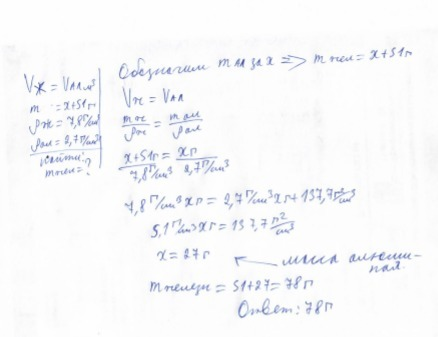 Vж = Vал м³
m = x+51г
ρж = 7,8 г/см³
ρал = 2,7 г/см³
найти:
mжел = ?
Обозначим m ал за x => m жел = x+51г
Vж = Vал
mж/ρж = mал/ρал
x+51г/7,8г/см³ = xг/2,7г/см³
7,8г/см³ xг = 2,7г/см³ xг + 137,7г²/см³
5,1г/см³ xг = 137,7 г²/см³
x = 27г
масса алюми-
ния.
m железн = 51+27 = 78г
Ответ: 78г